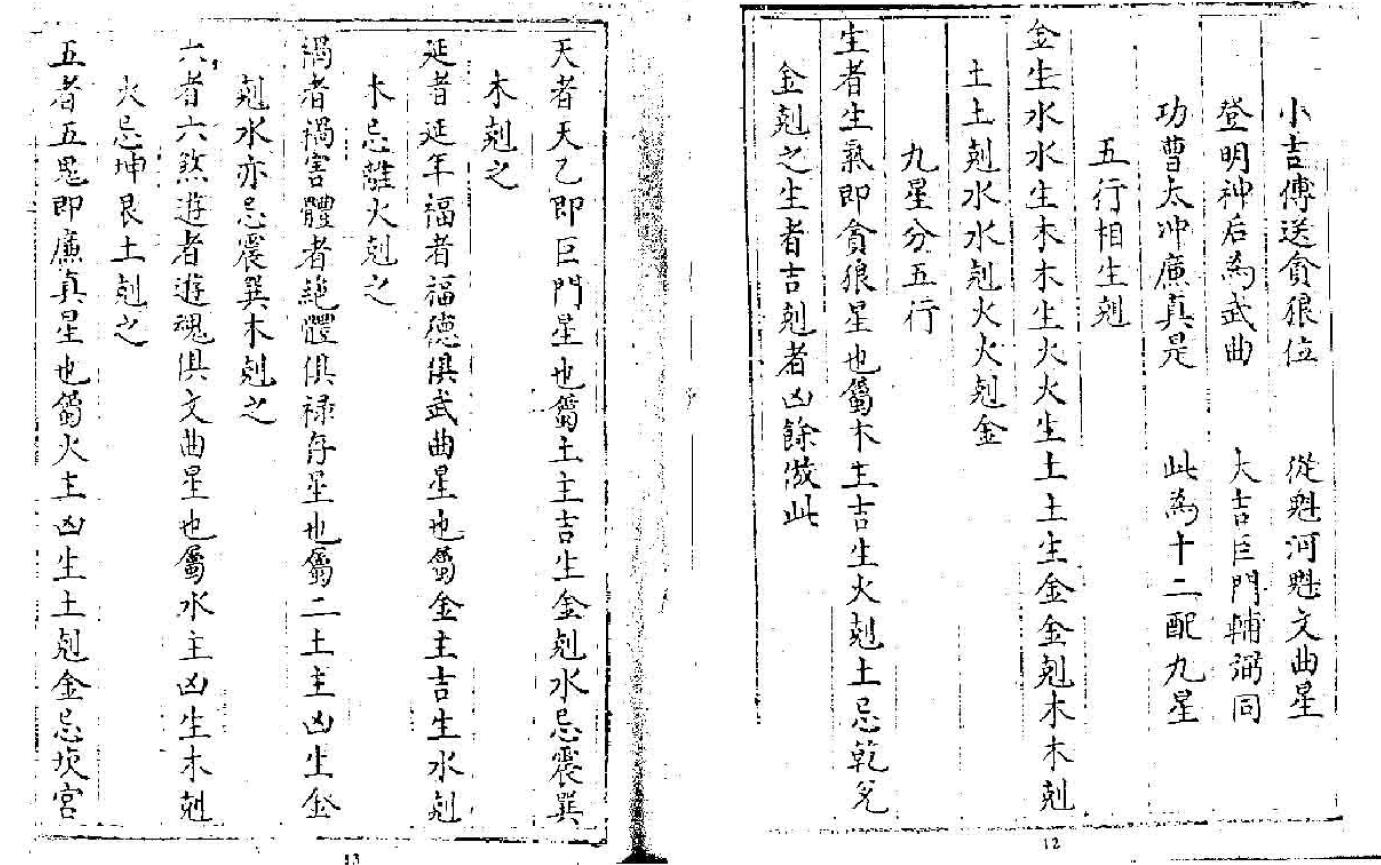 小吉傳送貪狼位　從魁河魁文曲星
登明神后為武曲　大吉巨門輔弼同
功曹太冲廉真是　此為十二配九星
五行相生剋
金生水水生木木生火火生土土生金金剋木木剋
土土剋水水剋火火剋金
九星分五行
生者生氣即貪狼星也屬木主吉生火剋土忌乾兌
金剋之生者吉剋者凶餘倣此
12
天者天乙即巨門星也屬土主吉生金剋水忌震巽
木剋之
延者延年福者福德俱武曲星也屬金主吉生水剋
木忌離火剋之
禍者禍害體者絕體俱祿存星也屬二土主凶生金
剋水亦忌震巽木剋之
六者六煞遊者遊魂俱文曲星也屬水主凶生木剋
火忌坤艮土剋之
五者五鬼即廉真星也屬火主凶生土剋金忌坎宮
13